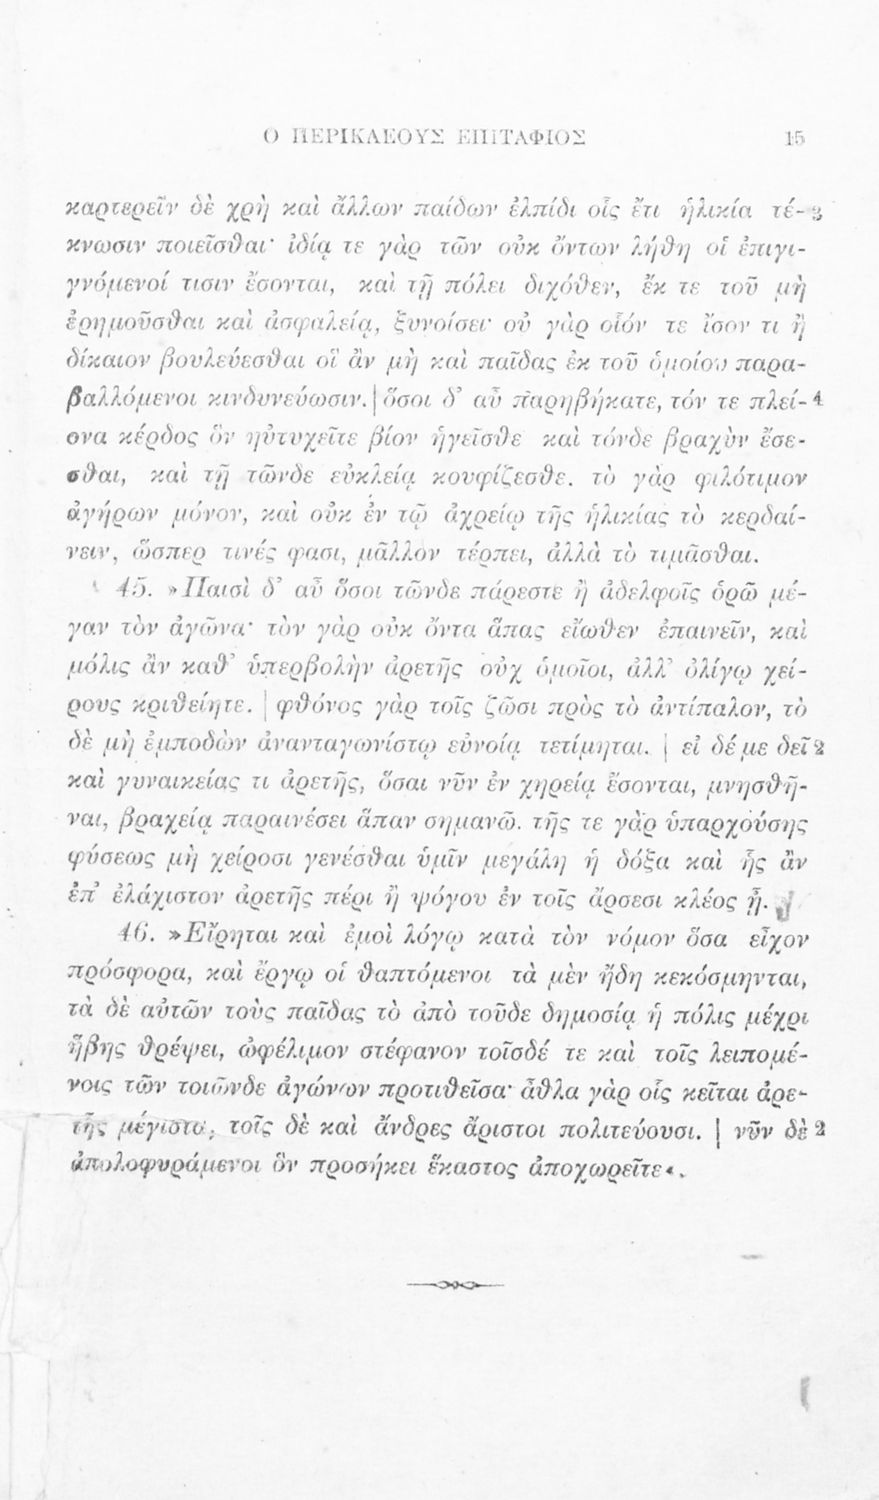 Ο ΠΕΡΙΚΛΕΟΥΣ ΕΠΙΤΑΦΙΟΣ 15
καρτερεῖν δὲ χρὴ καὶ ἄλλων παίδων ἐλπίδι οἷς ἔτι ἡλικία τέ- 3
κνωσιν ποιεῖσθαι· ἰδίᾳ τε γὰρ τῶν οὐκ ὄντων λήθη οἱ ἐπιγι-
γνόμενοί τισιν ἔσονται, καὶ τῇ πόλει διχόθεν, ἔκ τε τοῦ μὴ
ἐρημοῦσθαι καὶ ἀσφαλείᾳ, ξυνοίσει· οὐ γὰρ οἷόν τε ἴσον τι ἢ
δίκαιον βουλεύεσθαι οἳ ἂν μὴ καὶ παῖδας ἐκ τοῦ ὁμοίου παρα-
βαλλόμενοι κινδυνεύωσιν. | ὅσοι δ’ αὖ παρηβήκατε, τόν τε πλεί- 4
ονα κέρδος ὃν ηὐτυχεῖτε βίον ἡγεῖσθε καὶ τόνδε βραχὺν ἔσε-
σθαι, καὶ τῇ τῶνδε εὐκλείᾳ κουφίζεσθε. τὸ γὰρ φιλότιμον
ἀγήρων μόνον, καὶ οὐκ ἐν τῷ ἀχρείῳ τῆς ἡλικίας τὸ κερδαί-
νειν, ὥσπερ τινές φασι, μᾶλλον τέρπει, ἀλλὰ τὸ τιμᾶσθαι.
45. »Παισὶ δ’ αὖ ὅσοι τῶνδε πάρεστε ἢ ἀδελφοῖς ὁρῶ μέ-
γαν τὸν ἀγῶνα· τὸν γὰρ οὐκ ὄντα ἅπας εἴωθεν ἐπαινεῖν, καὶ
μόλις ἂν καθ’ ὑπερβολὴν ἀρετῆς οὐχ ὁμοῖοι, ἀλλ’ ὀλίγῳ χεί-
ρους κριθείητε. | φθόνος γὰρ τοῖς ζῶσι πρὸς τὸ ἀντίπαλον, τὸ
δὲ μὴ ἐμποδὼν ἀνανταγωνίστῳ εὐνοίᾳ τετίμηται. | εἰ δέ με δεῖ 2
καὶ γυναικείας τι ἀρετῆς, ὅσαι νῦν ἐν χηρείᾳ ἔσονται, μνησθῆ-
ναι, βραχείᾳ παραινέσει ἅπαν σημανῶ. τῆς τε γὰρ ὑπαρχούσης
φύσεως μὴ χείροσι γενέσθαι ὑμῖν μεγάλη ἡ δόξα καὶ ἧς ἂν
ἐπ’ ἐλάχιστον ἀρετῆς πέρι ἢ ψόγου ἐν τοῖς ἄρσεσι κλέος ᾖ.
46. »Εἴρηται καὶ ἐμοὶ λόγῳ κατὰ τὸν νόμον ὅσα εἶχον
πρόσφορα, καὶ ἔργῳ οἱ θαπτόμενοι τὰ μὲν ἤδη κεκόσμηνται,
τὰ δὲ αὐτῶν τοὺς παῖδας τὸ ἀπὸ τοῦδε δημοσίᾳ ἡ πόλις μέχρι
ἥβης θρέψει, ὠφέλιμον στέφανον τοῖσδέ τε καὶ τοῖς λειπομέ-
νοις τῶν τοιῶνδε ἀγώνων προτιθεῖσα· ἆθλα γὰρ οἷς κεῖται ἀρε-
τῆς μέγιστα, τοῖς δὲ καὶ ἄνδρες ἄριστοι πολιτεύουσι. | νῦν δὲ 2
ἀπολοφυράμενοι ὃν προσήκει ἕκαστος ἀποχωρεῖτε«.